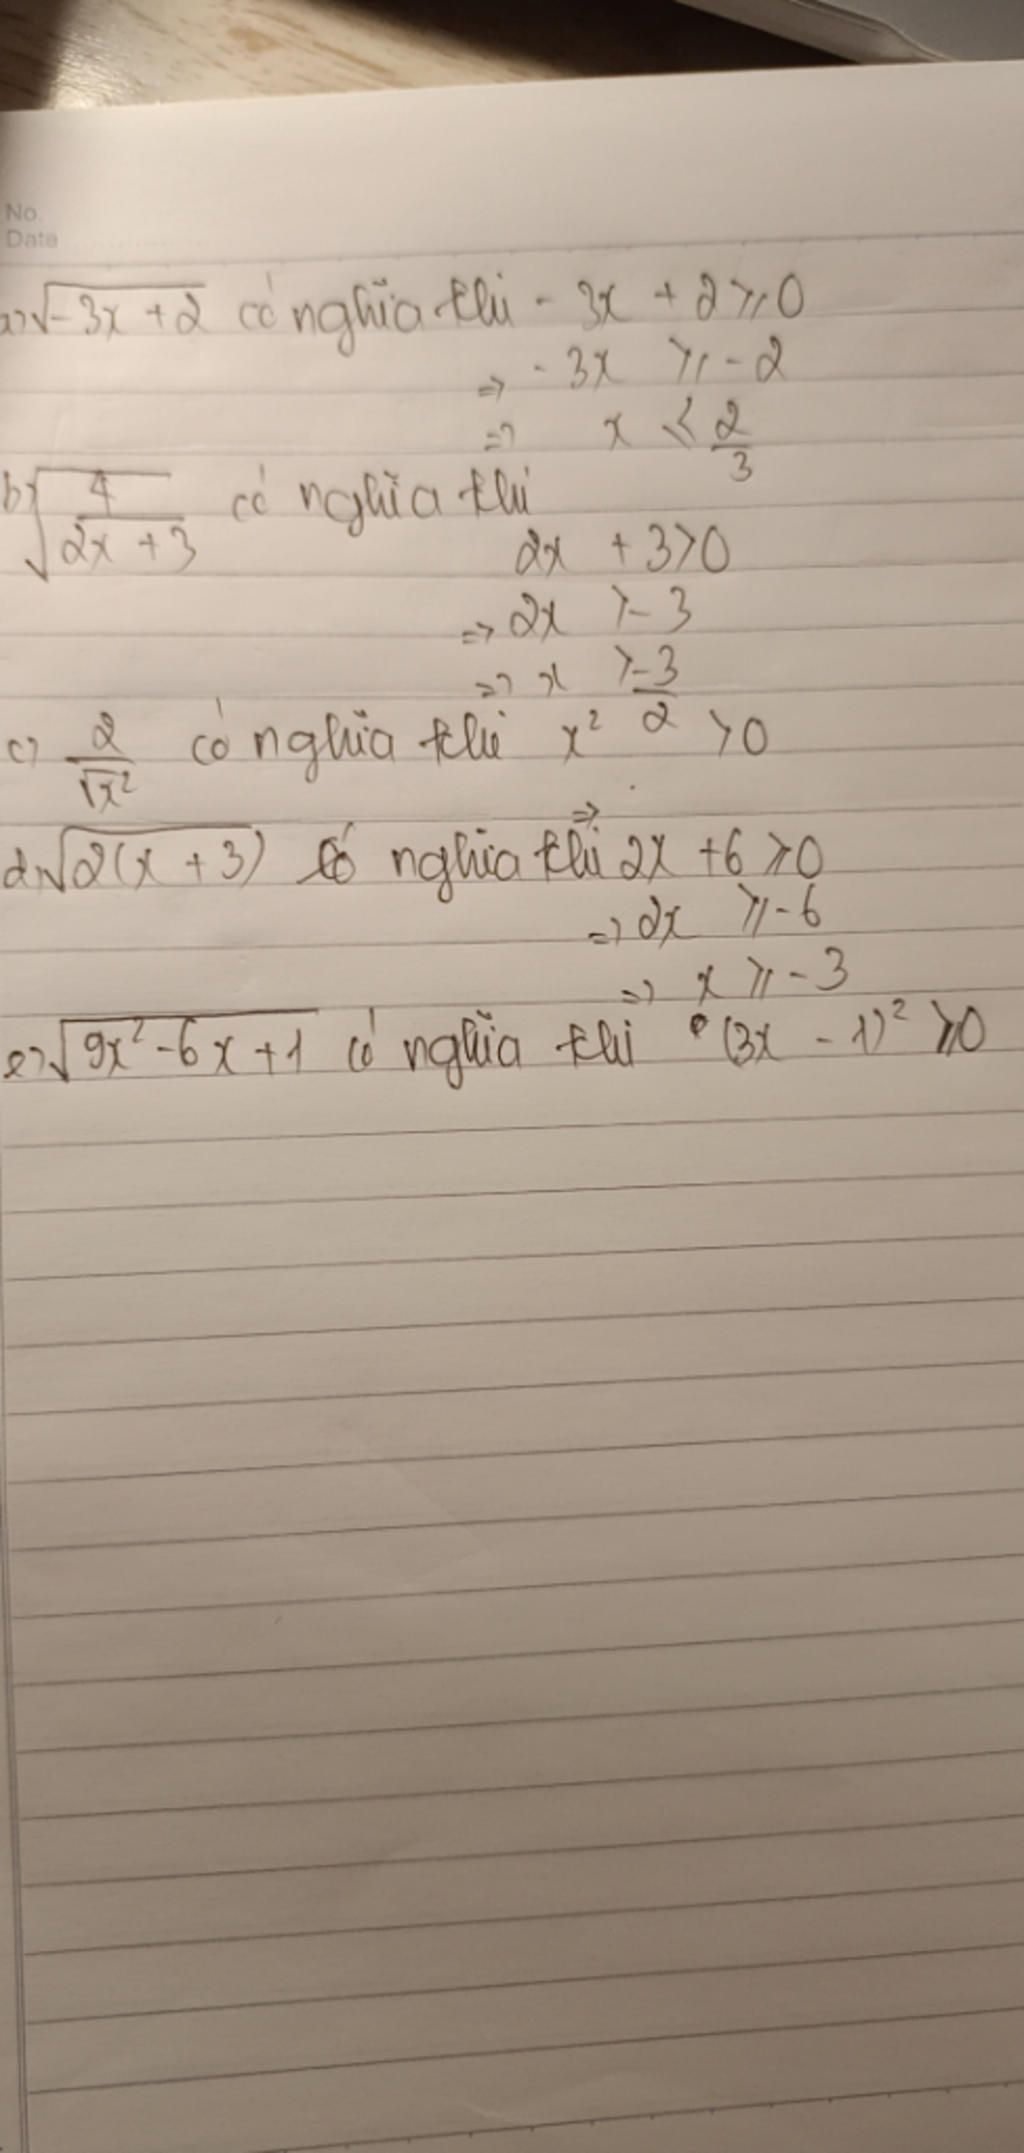 No.
Date
a) √-3x + 2 có nghĩa khi - 3x + 2 ≥ 0
=> - 3x ≥ - 2
=> x ≤ 2/3
b) √4/(2x + 3) có nghĩa khi
2x + 3 > 0
=> 2x > - 3
=> x > -3/2
c) 2/√x² có nghĩa khi x² > 0
=>
d) √2(x + 3) có nghĩa khi 2x + 6 ≥ 0
=> 2x ≥ - 6
=> x ≥ - 3
e) √9x² - 6x + 1 có nghĩa khi (3x - 1)² ≥ 0